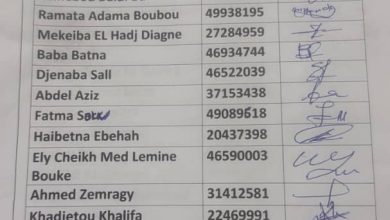 Ramata Adama Boubou 49938195
Mekeiba EL Hadj Diagne 27284959
Baba Batna 46934744
Djenaba Sall 46522039
Abdel Aziz 37153438
Fatma 49089618
Haibetna Ebehah 20437398
Ely Cheikh Med Lemine 46590003
Bouke
Ahmed Zemragy 31412581
Khadjetou Khalifa 22469991